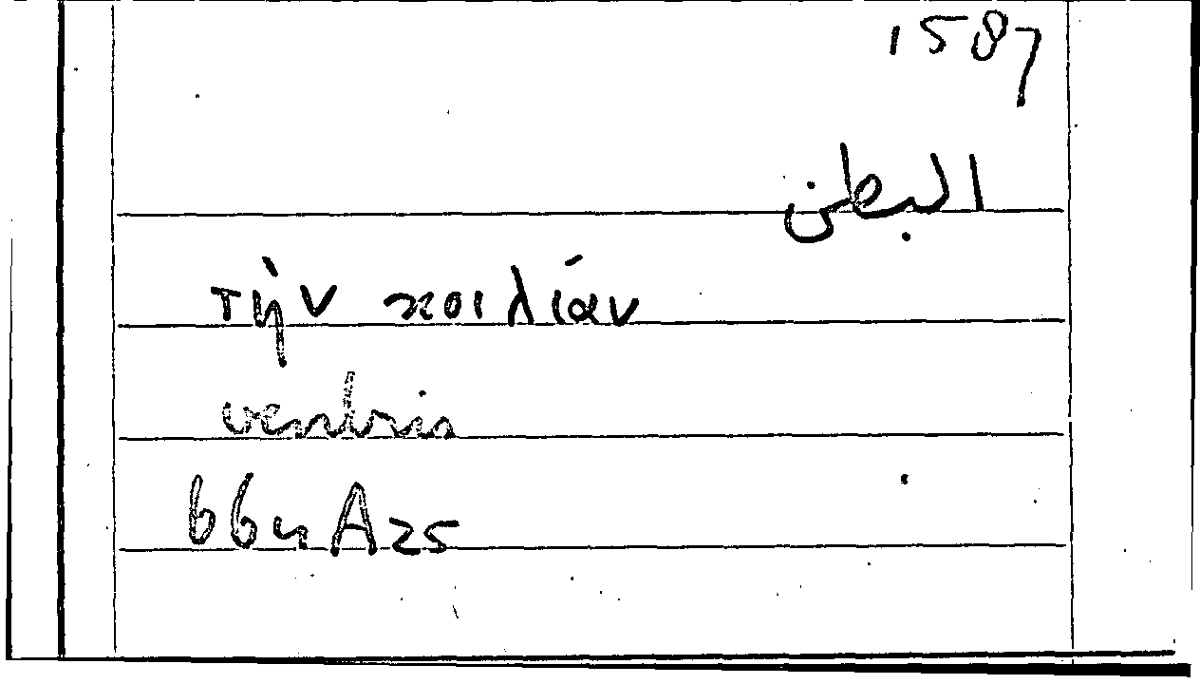 1587
البطن
τὴν κοιλίαν
ventris
664 A 25